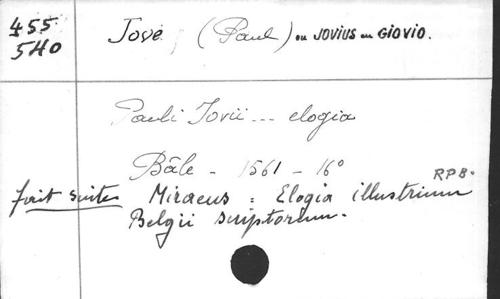 455
5H0
Jove (Paul) ou JOVIUS ou GIOVIO.
Pauli Jovii --- elogia
Bâle - 1561 - 16°
RPB.
fait suite Miraeus : Elogia illustrium
Belgii scriptorum.